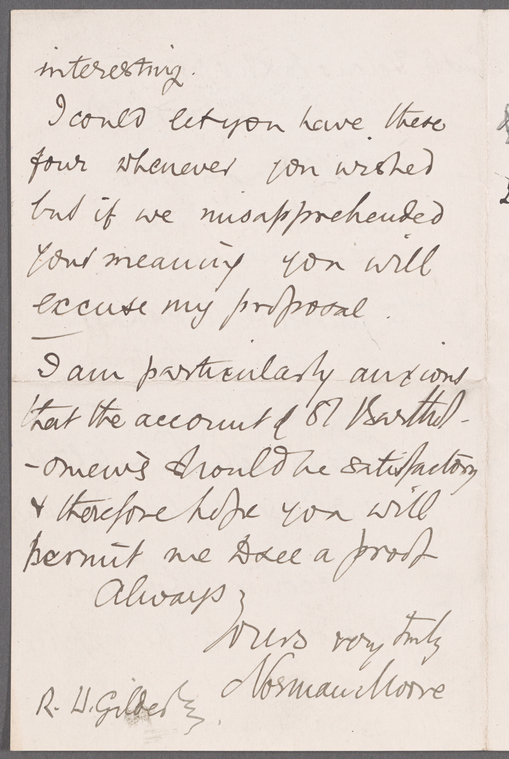 interesting.
I could let you have these
four whenever you wished
but if we misapprehended
your meaning you will
excuse my proposal.
I am particularly anxious
that the account of St Barthol-
-omew's should be satisfactory
& therefore hope you will
permit me to see a proof
Always
Yours very truly
Norman Moore
R. W. Gilder